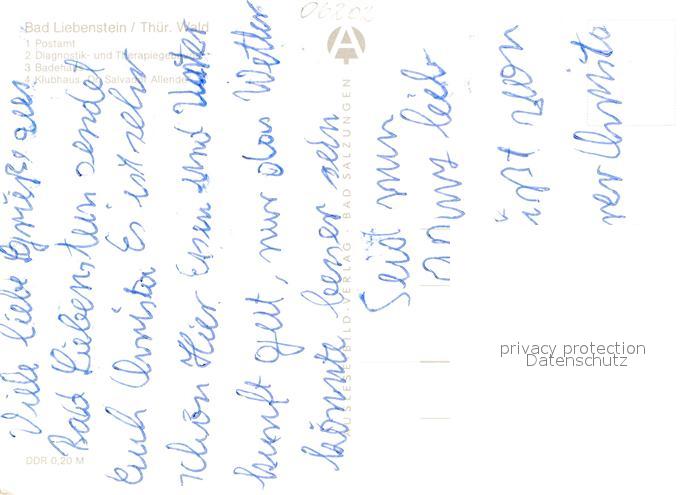 Bad Liebenstein / Thür. Wald
1 Postamt
2 Diagnostik- und Therapiegebäude
3 Badehaus
4 Klubhaus "Dr. Salvador Allende"
06202
AUSLESE-BILD-VERLAG · BAD SALZUNGEN
DDR 0,20 M
Viele liebe Grüße aus
Bad Liebenstein sendet
Euch Christa Es ist sehr
schön Hier Essen und Unter
kunft gut, nur das Wetter
könnte besser sein
Seid nun
lieb
von
Christa
privacy protection
Datenschutz